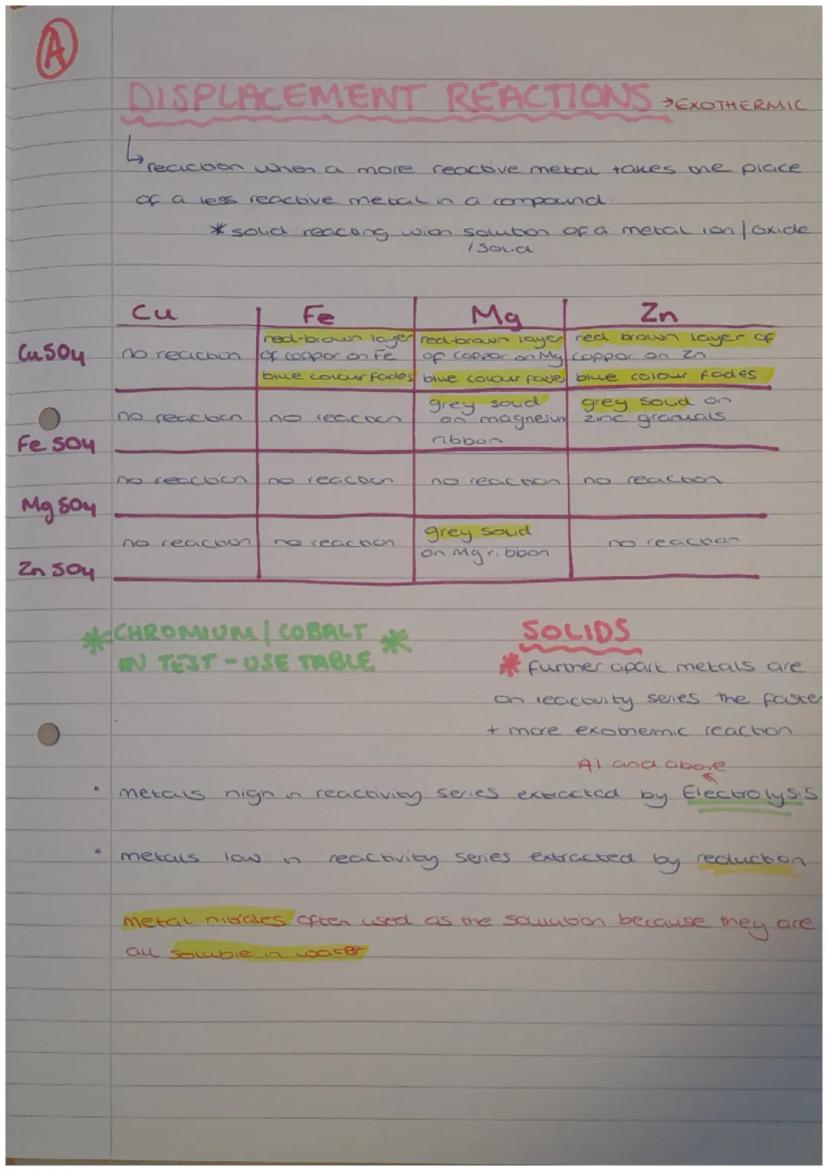 A
DISPLACEMENT REACTIONS →EXOTHERMIC
↳ reaction when a more reactive metal takes the place
of a less reactive metal in a compound.
* solid reacting with solution of a metal ion / oxide
/ solid
Cu Fe Mg Zn
CuSO4 no reaction red-brown layer of copper on Fe blue colour fades red-brown layer of copper on Mg blue colour fades red brown layer of copper on Zn blue colour fades
FeSO4 no reaction no reaction grey solid on magnesium ribbon grey solid on zinc granuals
MgSO4 no reaction no reaction no reaction no reaction
ZnSO4 no reaction no reaction grey solid on Mg ribbon no reaction
* CHROMIUM / COBALT *
IN TEST - USE TABLE
SOLIDS
* further apart metals are
on reactivity series the faster
+ more exothermic reaction
Al and above
• metals high in reactivity series extracted by Electrolysis
• metals low in reactivity series extracted by reduction
metal nitrates often used as the solution because they are
all soluble in water